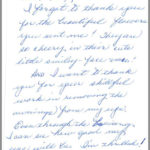 I forgot to thank you
for the beautiful flowers
you sent me! They are
so cheery in their cute
little smiley-face
And I want to thank
you for your skillful
work in removing the
from my eye!
Even through the
I can see how good my
eyes will be. I'm thrilled!